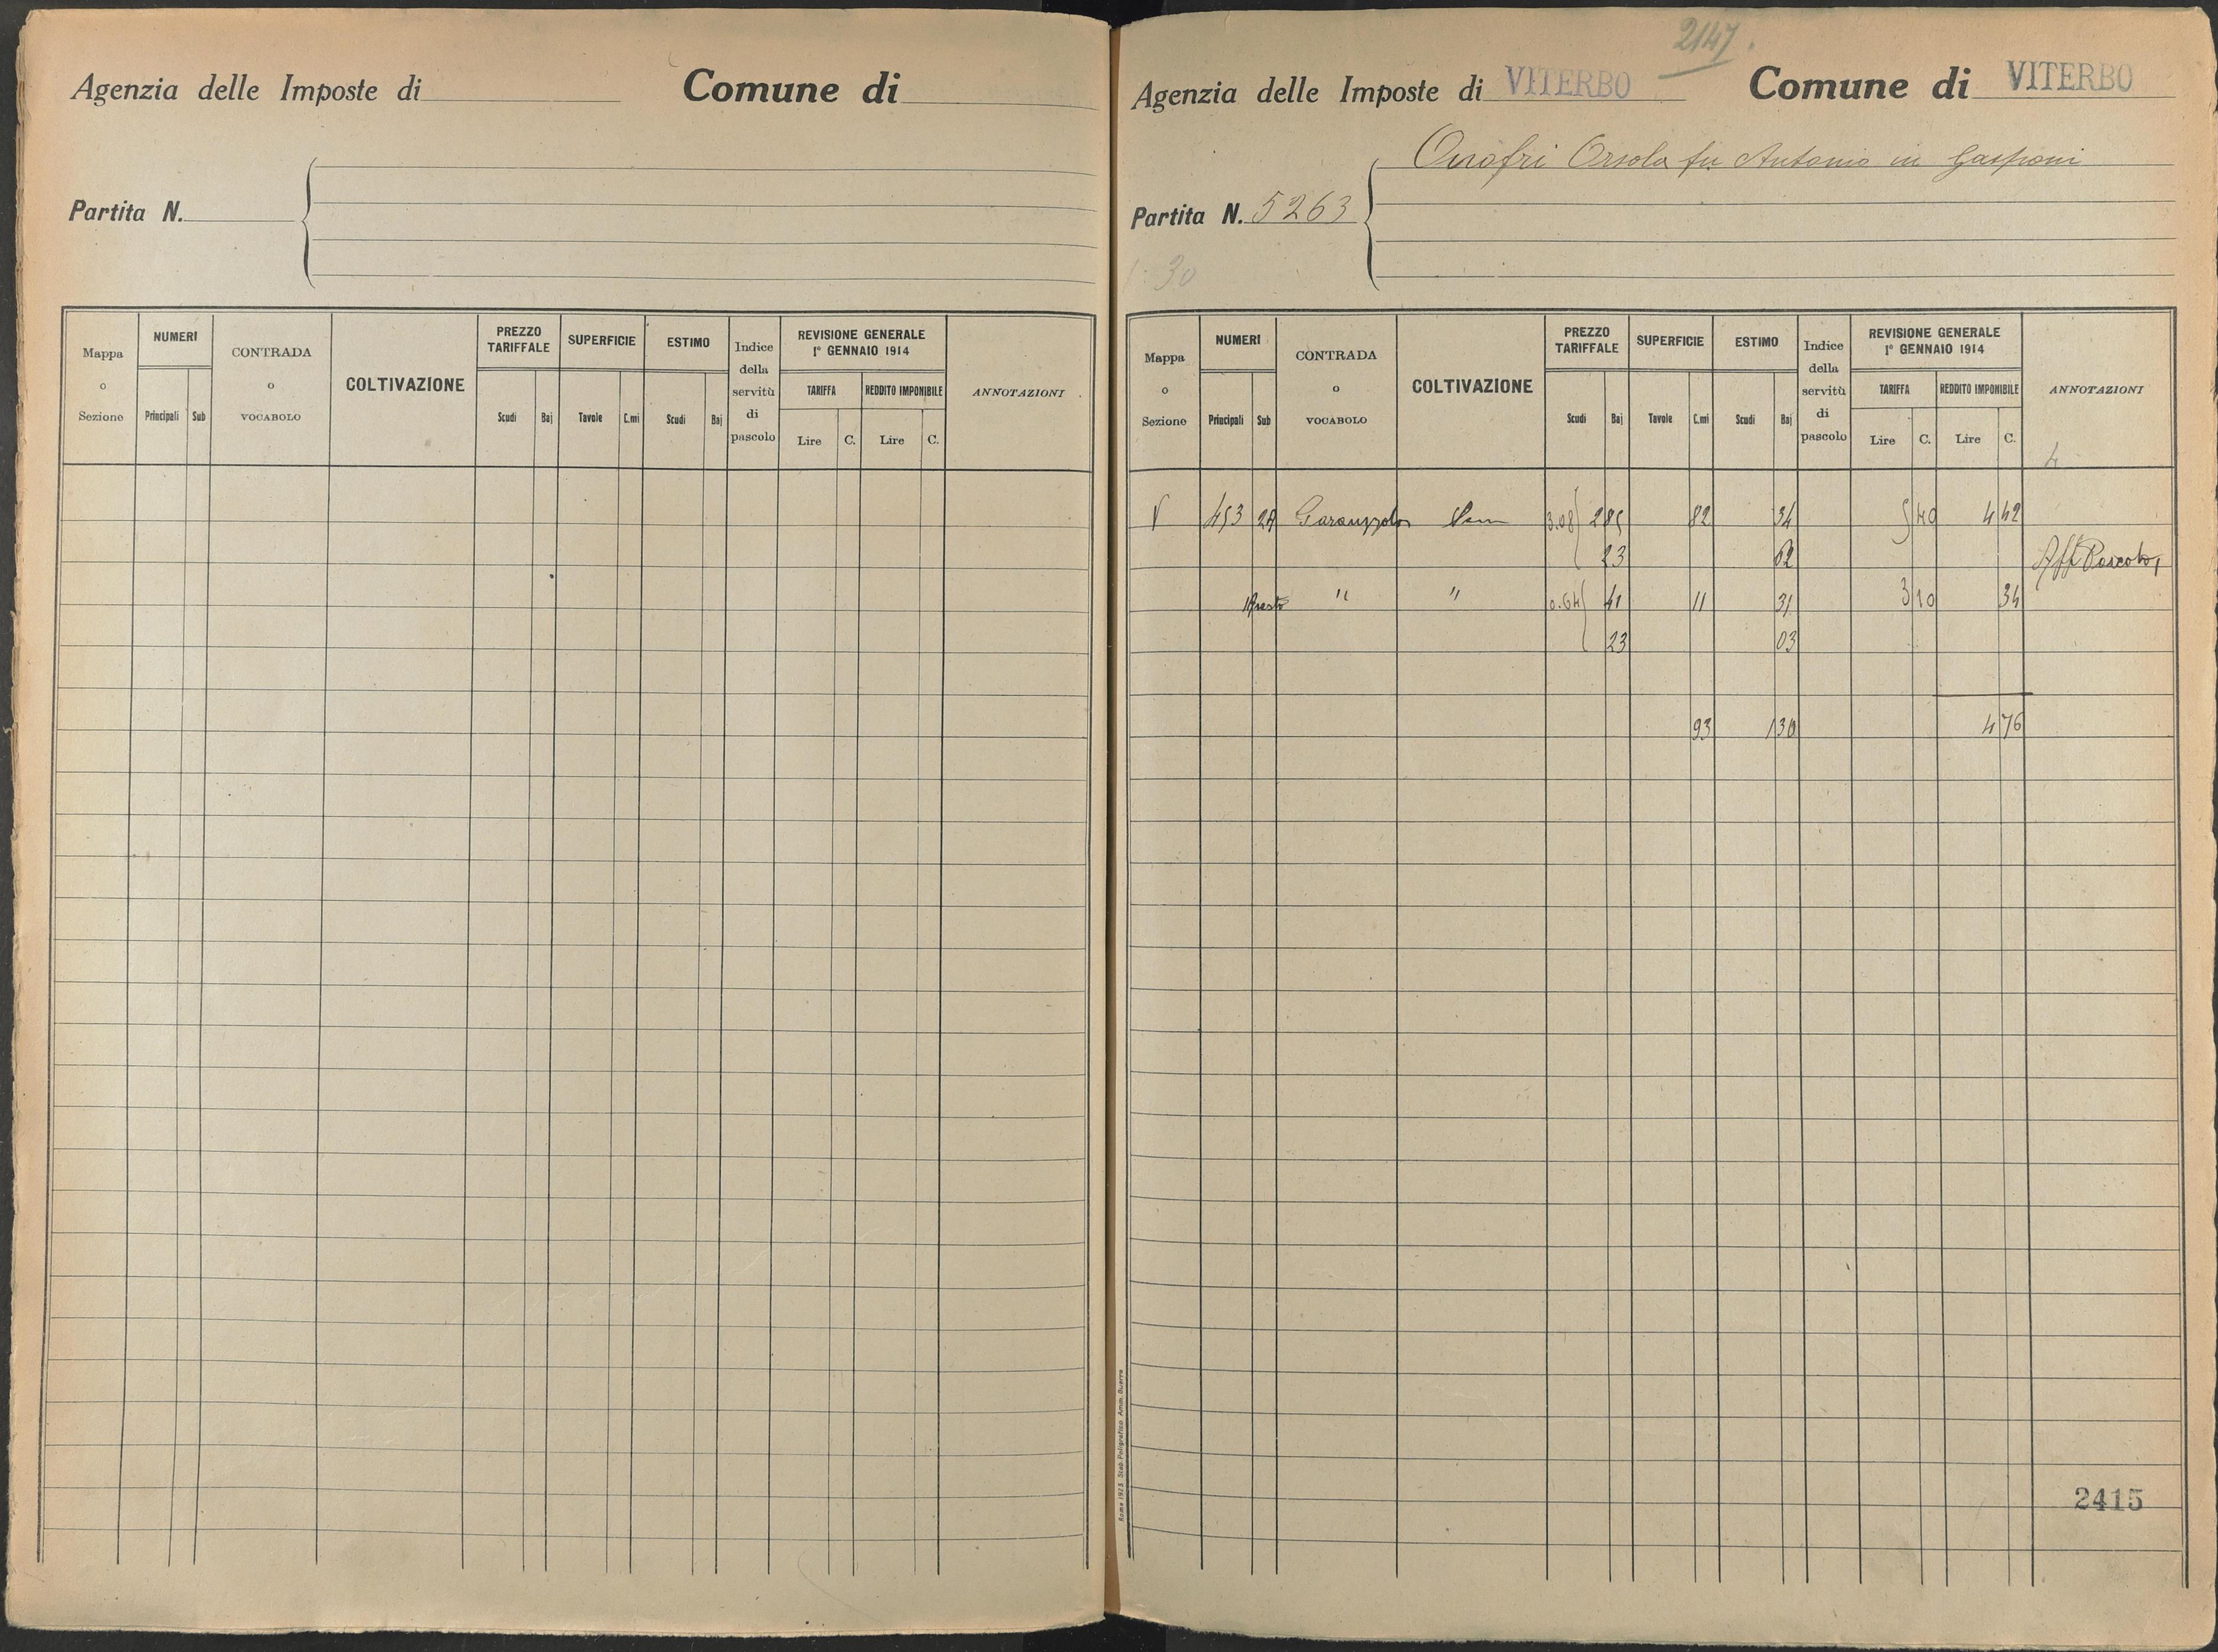 Agenzia delle Imposte di Comune di
Partita N.
Mappa o Sezione NUMERI Principali Sub CONTRADA o VOCABOLO COLTIVAZIONE PREZZO TARIFFALE Scudi Baj SUPERFICIE Tavole C.mi ESTIMO Scudi Baj Indice della servitù di pascolo REVISIONE GENERALE 1° GENNAIO 1914 TARIFFA Lire C. REDDITO IMPONIBILE Lire C. ANNOTAZIONI
2147.
Agenzia delle Imposte di VITERBO Comune di VITERBO
Onofri Orsola fu Antonio in Gasponi
Partita N. 5263
30
Mappa o Sezione NUMERI Principali Sub CONTRADA o VOCABOLO COLTIVAZIONE PREZZO TARIFFALE Scudi Baj SUPERFICIE Tavole C.mi ESTIMO Scudi Baj Indice della servitù di pascolo REVISIONE GENERALE 1° GENNAIO 1914 TARIFFA Lire C. REDDITO IMPONIBILE Lire C. ANNOTAZIONI
453 3.08 285 82 34 5 40 4 42
23 62
" " 0.64 41 11 31 3 10 34
23 03
93 1 30 4 76
2415
Roma 1923 Stab. Poligrafico Amm. Guerra